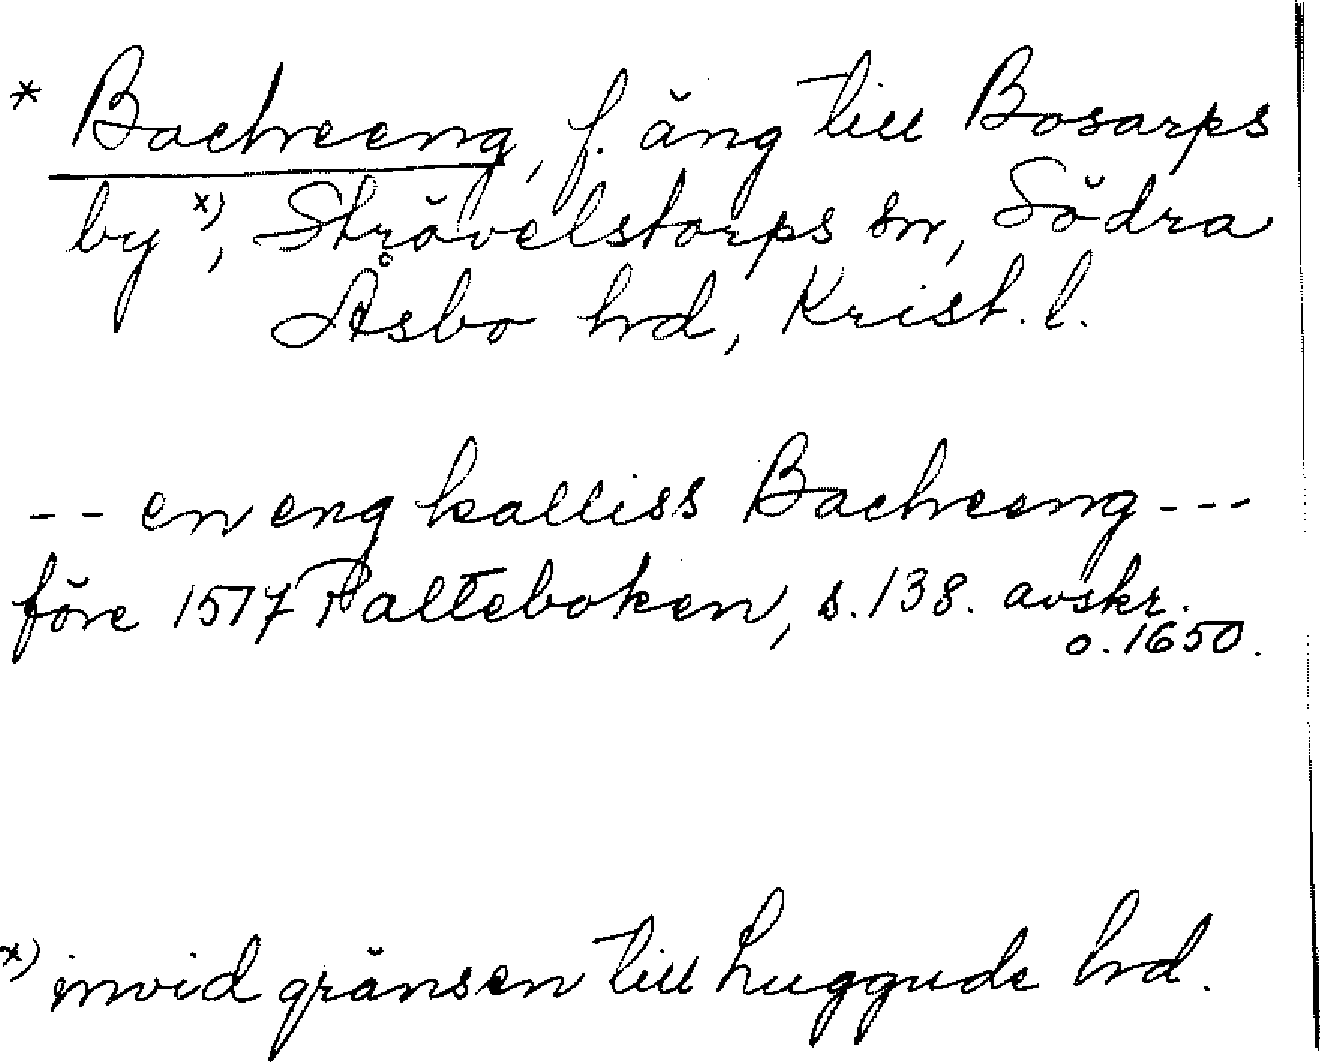 * Bachreeng, f. äng till Bosarps
by x), Strövelstorps sn, Södra
Åsbo hd, Krist. l.
-- en eng kalliss Bachreeng ---
före 1517 Palteboken, s. 138. avskr.
o. 1650.
x) invid gränsen till Luggude hd.